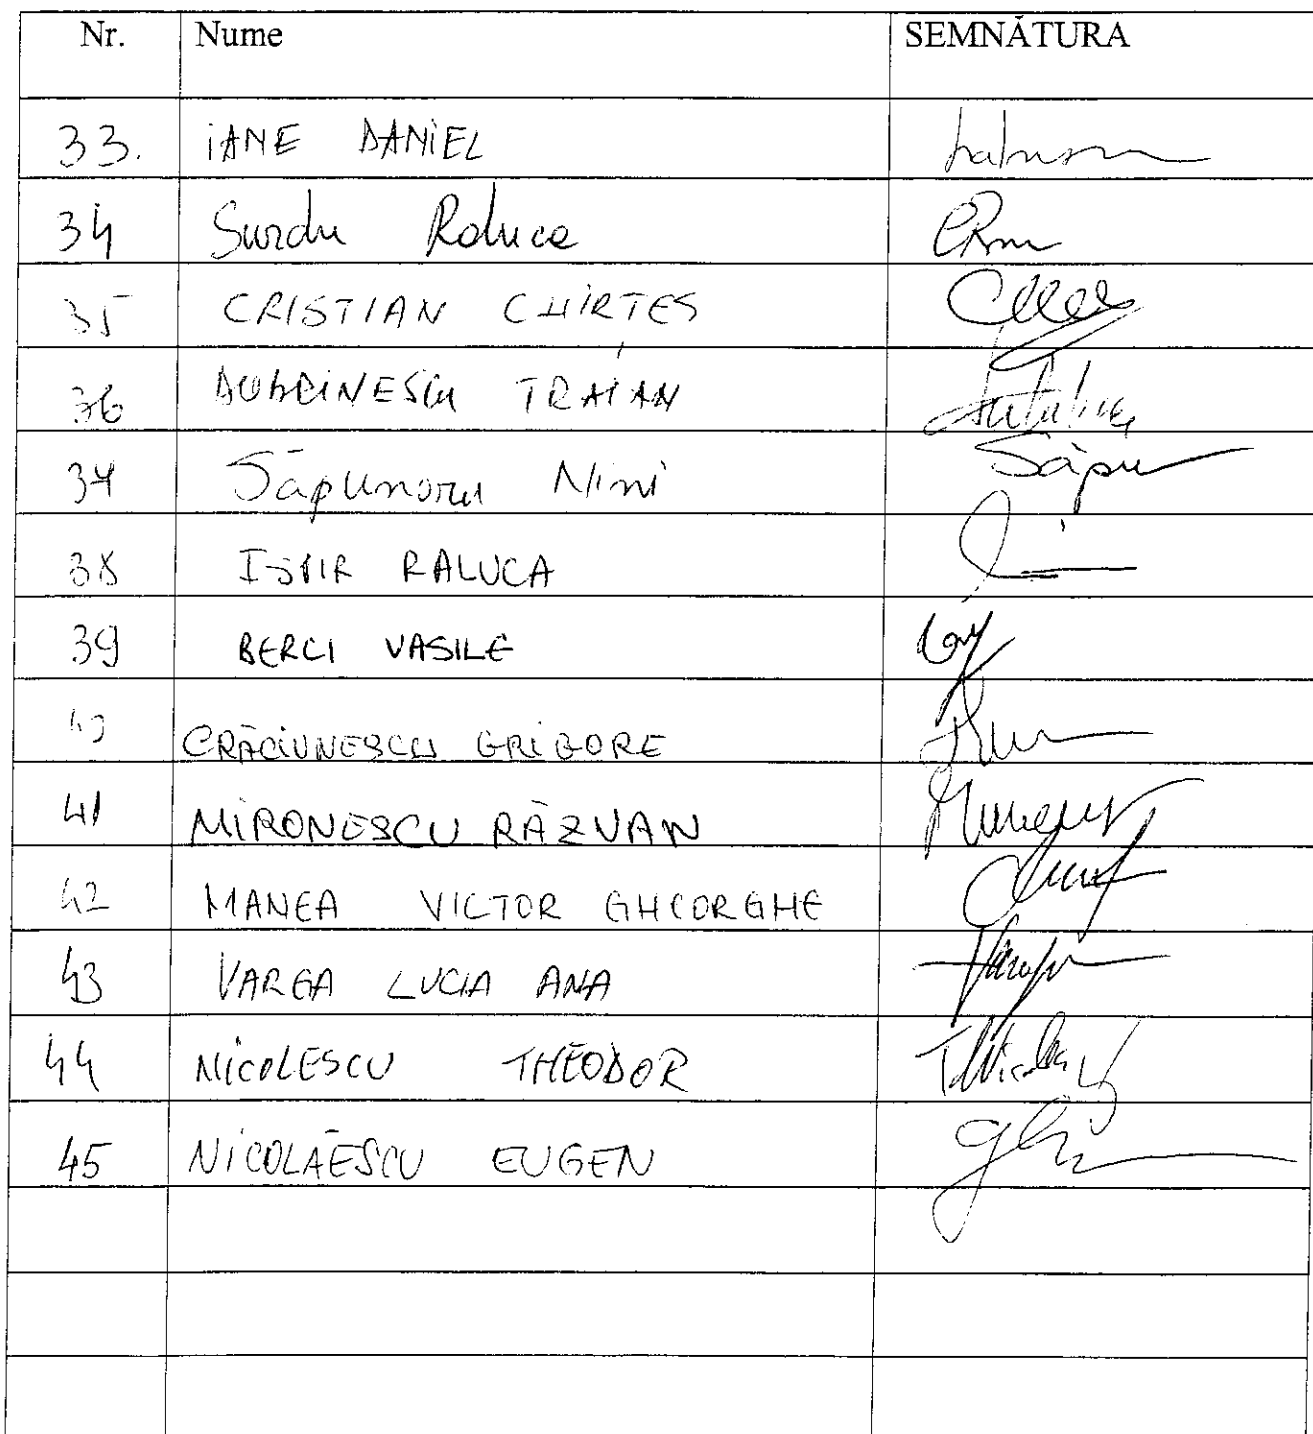 Nr. Nume SEMNĂTURA
33. IANE DANIEL
34 Surdu Raluca
35 CRISTIAN CHIRTES
36 DOBRINESCU TRAIAN
37 Săpunaru Nini
38 ISPIR RALUCA
39 BERCI VASILE
40 CRĂCIUNESCU GRIGORE
41 MIRONESCU RĂZVAN
42 MANEA VICTOR GHEORGHE
43 VARGA LUCIA ANA
44 NICOLESCU THEODOR
45 NICOLĂESCU EUGEN